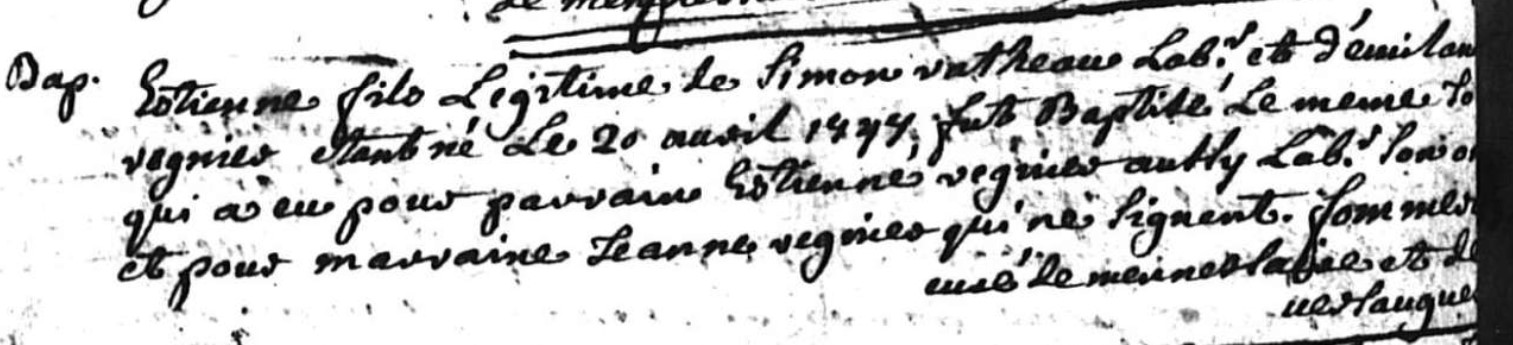 Bap. Estienne fils Legitime de Simon vatheau Lab.r et d'émilan
vegnier etant né Le 20 avril 1777, fut Baptisé Le meme Jo
qui a eu pour parrain Estienne vegnier aussy Lab.r son o
et pour marraine Jeanne vegnier qui ne signent. Sommes
curé de et de